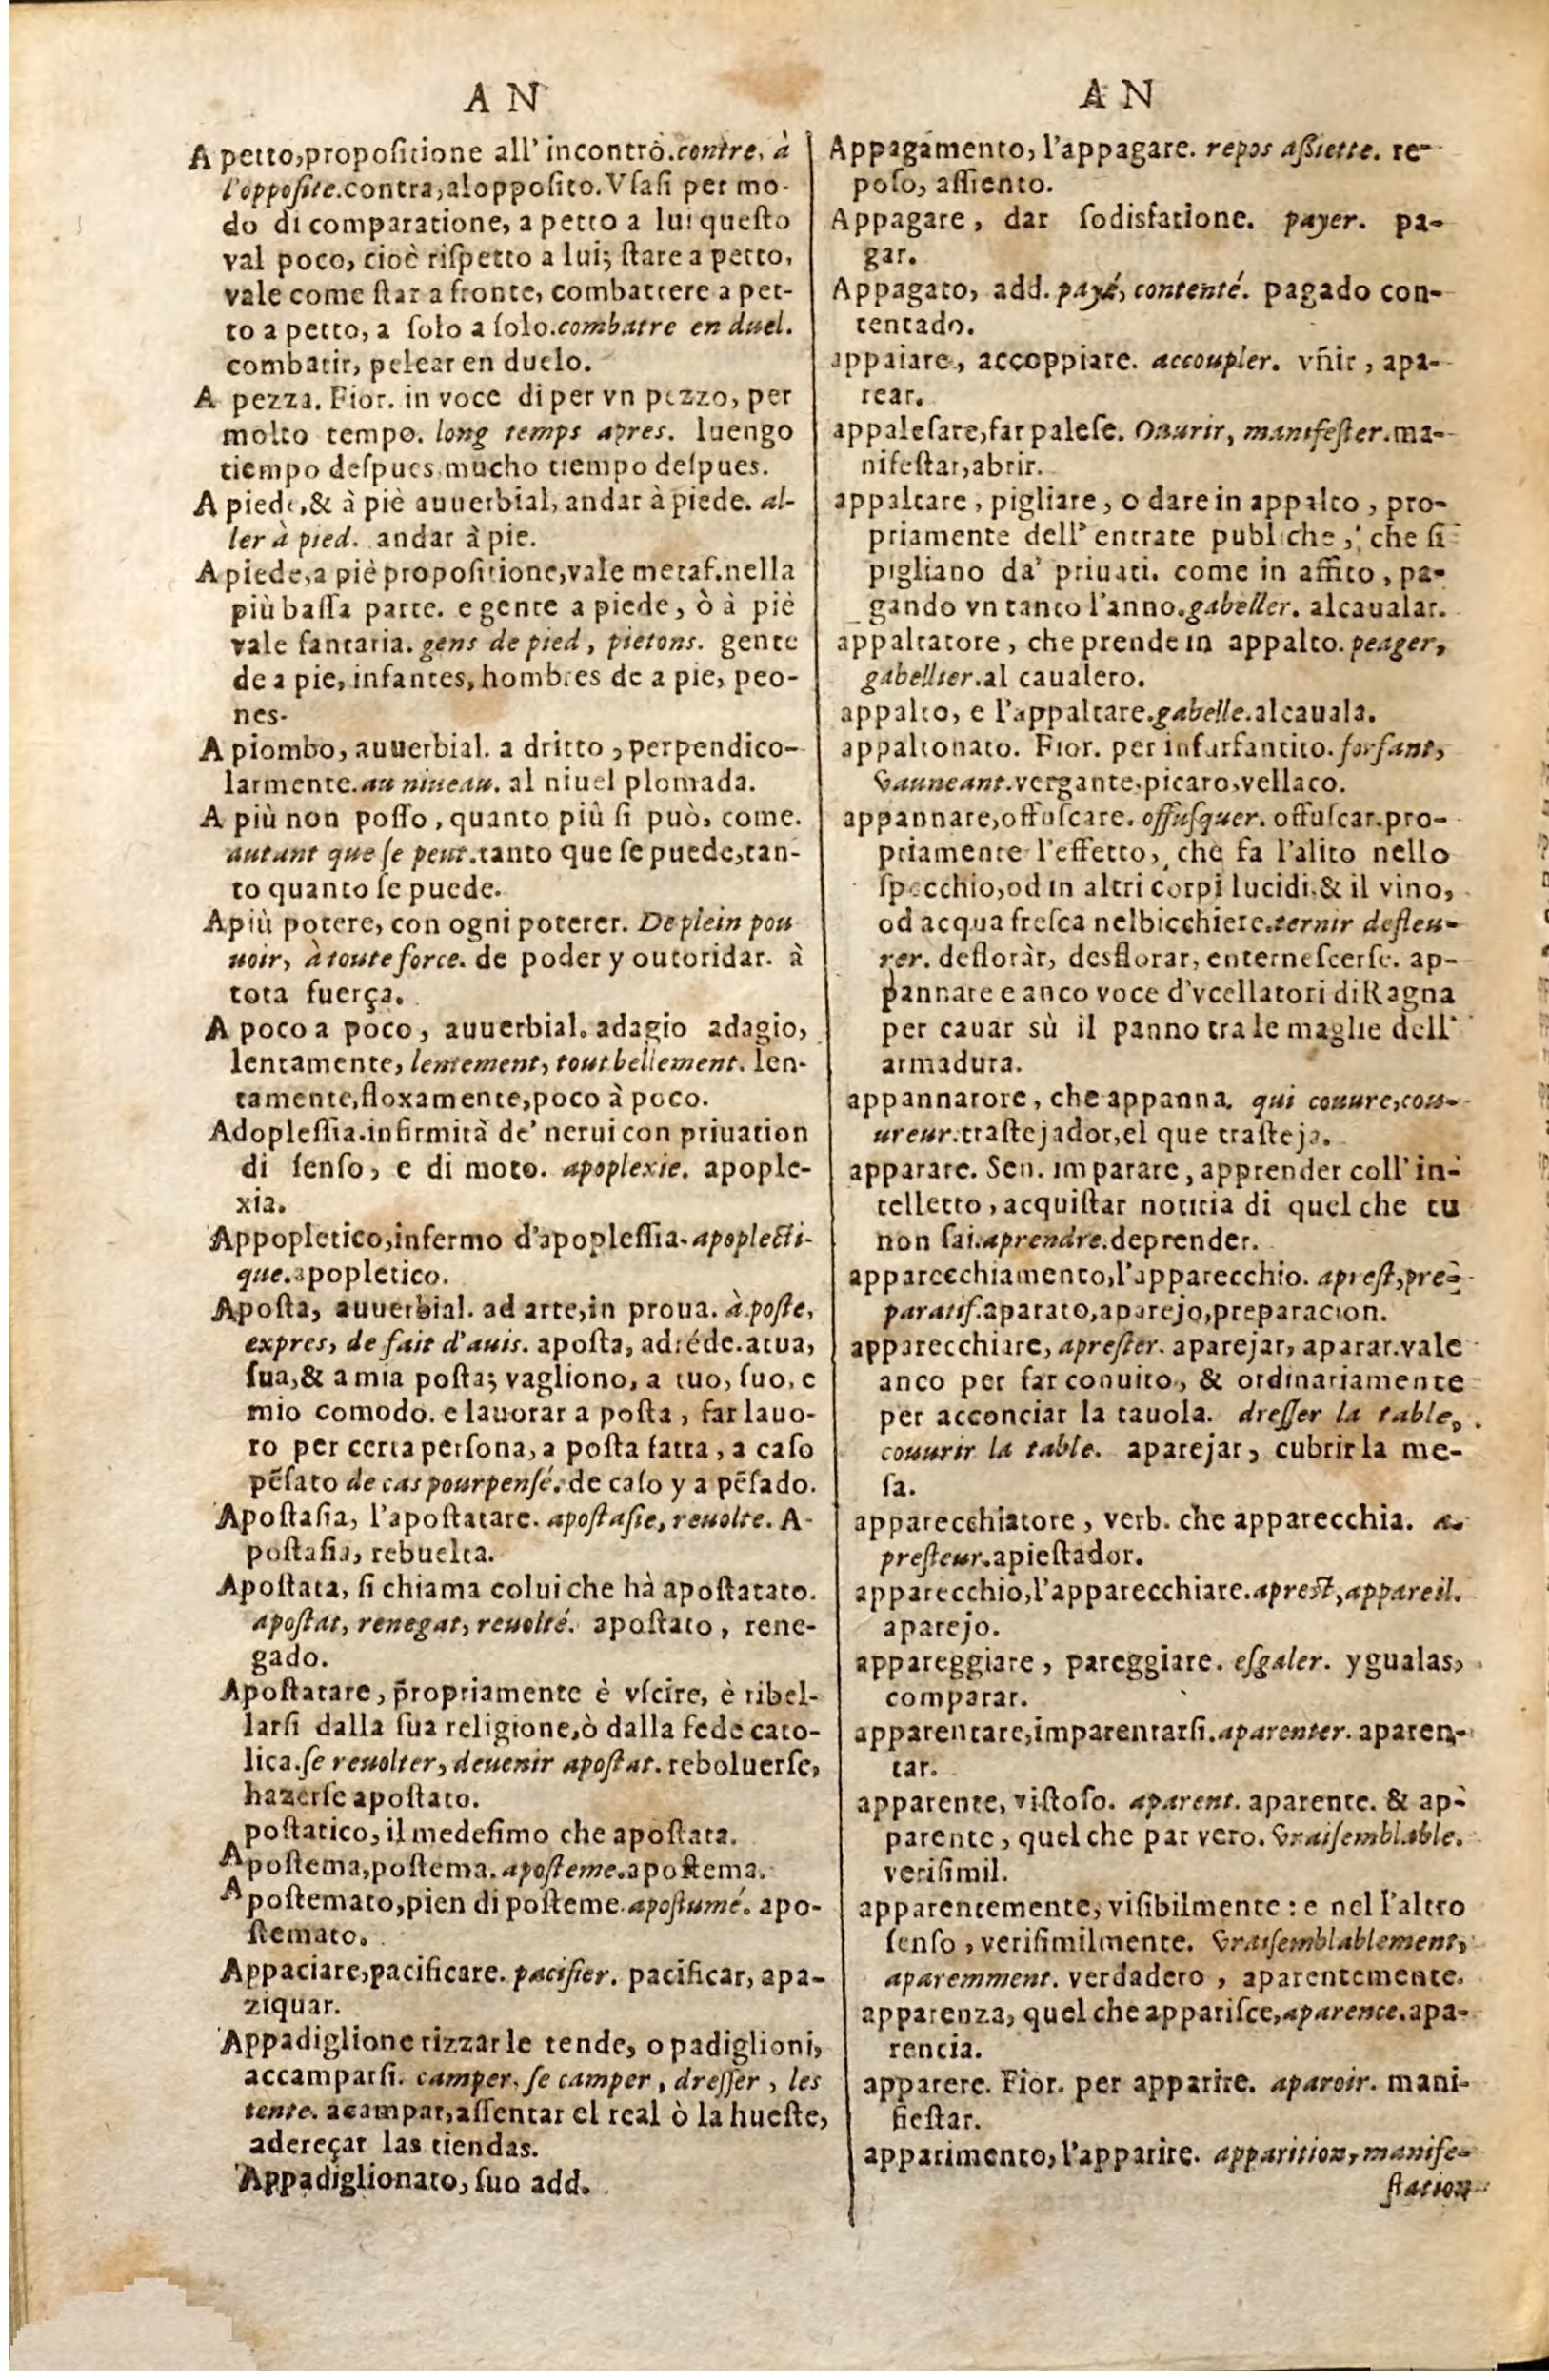 A N
A petto,propoſitione all' incontrò.contre, à
l'oppoſite.contra,aloppoſito.Vſaſi per mo-
do di comparatione, a petto a lui queſto
val poco, cioè riſpetto a lui; ſtare a petto,
vale come ſtar a fronte, combattere a pet-
to a petto, a ſolo a ſolo.combatre en duel.
combatir, pelear en duelo.
A pezza. Fior. in voce di per vn pezzo, per
molto tempo. long temps apres. luengo
tiempo deſpues,mucho tiempo deſpues.
A piede,& à piè auuerbial, andar à piede. al-
ler à pied. andar à pie.
A piede,a piè propoſitione,vale metaf.nella
più baſſa parte. e gente a piede, ò à piè
vale fantaria. gens de pied, pietons. gente
de a pie, infantes, hombres de a pie, peo-
nes.
A piombo, auuerbial. a dritto, perpendico-
larmente.au niueau. al niuel plomada.
A più non poſſo, quanto più ſi può, come.
autant que ſe peut.tanto que ſe puede,tan-
to quanto ſe puede.
Apiù potere, con ogni poterer. De plein pou
uoir, à toute force. de poder y outoridar. à
tota fuerça.
A poco a poco, auuerbial. adagio adagio,
lentamente, lentement, tout bellement. len-
tamente,floxamente,poco à poco.
Adopleſſia.infirmità de' nerui con priuation
di ſenſo, e di moto. apoplexie. apople-
xia.
Appopletico,infermo d'apopleſſia.apoplecti-
que.apopletico.
Apoſta, auuerbial. ad arte,in proua. à poſte,
expres, de fait d'auis. apoſta, adréde.atua,
ſua,& a mia poſta; vagliono, a tuo, ſuo, e
mio comodo. e lauorar a poſta, far lauo-
ro per certa perſona, a poſta fatta, a caſo
pẽſato de cas pourpenſé. de caſo y a pẽſado.
Apoſtaſia, l'apoſtatare. apoſtaſie, reuolte. A-
poſtaſia, rebuelta.
Apoſtata, ſi chiama colui che hà apoſtatato.
apoſtat, renegat, reuolté. apoſtato, rene-
gado.
Apoſtatare, p̃ropriamente è vſcire, è ribel-
larſi dalla ſua religione,ò dalla fede cato-
lica.ſe reuolter, deuenir apoſtat. reboluerſe,
hazerſe apoſtato.
poſtatico, il medeſimo che apoſtata.
Apoſtema,poſtema. apoſteme.apoſtema.
Apoſtemato,pien di poſteme.apoſtumé. apo-
ſtemato.
Appaciare,pacificare. pacifier. pacificar, apa-
ziquar.
Appadiglione rizzar le tende, o padiglioni,
accamparſi. camper. ſe camper, dreſſer, les
tente. acampar,aſſentar el real ò la hueſte,
adereçar las tiendas.
Appadiglionato, ſuo add.
A N
Appagamento, l'appagare. repos aßiette. re-
poſo, aſſiento.
Appagare, dar ſodisfatione. payer. pa-
gar.
Appagato, add. payé, contenté. pagado con-
tentado.
appaiare, accoppiare. accoupler. vñir, apa-
rear.
appaleſare,far paleſe. Ouurir, manifeſter.ma-
nifeſtar,abrir.
appaltare, pigliare, o dare in appalto, pro-
priamente dell' entrate publiche, che ſi
pigliano da' priuati. come in affito, pa-
gando vn tanto l'anno.gabeller. alcaualar.
appaltatore, che prende in appalto. peager,
gabellier.al caualero.
appalto, e l'appaltare.gabelle.alcauala.
appaltonato. Fior. per infurfantito. forfant,
vauneant.vergante,picaro,vellaco.
appannare,offuſcare. offuſquer. offuſcar.pro-
priamente l'effetto, che fa l'alito nello
ſpecchio,od in altri corpi lucidi.& il vino,
od acqua freſca nelbicchiere.ternir defleu-
rer. defloràr, desflorar, enterneſcerſe. ap-
pannare e anco voce d'vcellatori di Ragna
per cauar sù il panno tra le maglie dell'
armadura.
appannatore, che appanna. qui couure,cou-
ureur.traſtejador,el que traſteja.
apparare. Sen. imparare, apprender coll' in-
telletto, acquiſtar notitia di quel che tu
non ſai.aprendre.deprender.
apparecchiamento,l'apparecchio. apreſt,pre-
paratif.aparato,aparejo,preparacion.
apparecchiare, apreſter. aparejar, aparar.vale
anco per far conuito, & ordinariamente
per acconciar la tauola. dreſſer la table,
couurir la table. aparejar, cubrir la me-
ſa.
apparecchiatore, verb. che apparecchia. a-
preſteur.apieſtador.
apparecchio,l'apparecchiare.apreſt,appareil.
aparejo.
appareggiare, pareggiare. eſgaler. ygualas,
comparar.
apparentare,imparentarſi.aparenter. aparen-
tar.
apparente, viſtoſo. aparent. aparente. & ap-
parente, quel che par vero. vraiſemblable.
veriſimil.
apparentemente, viſibilmente : e nel l'altro
ſenſo, veriſimilmente. vraiſemblablement,
aparemment. verdadero, aparentemente.
apparenza, quel che appariſce,aparence.apa-
rencia.
apparere. Fior. per apparire. aparoir. mani-
fieſtar.
apparimento, l'apparire. apparition, manife-
ſtation